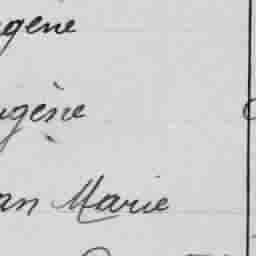 gène
ugène
an Marie